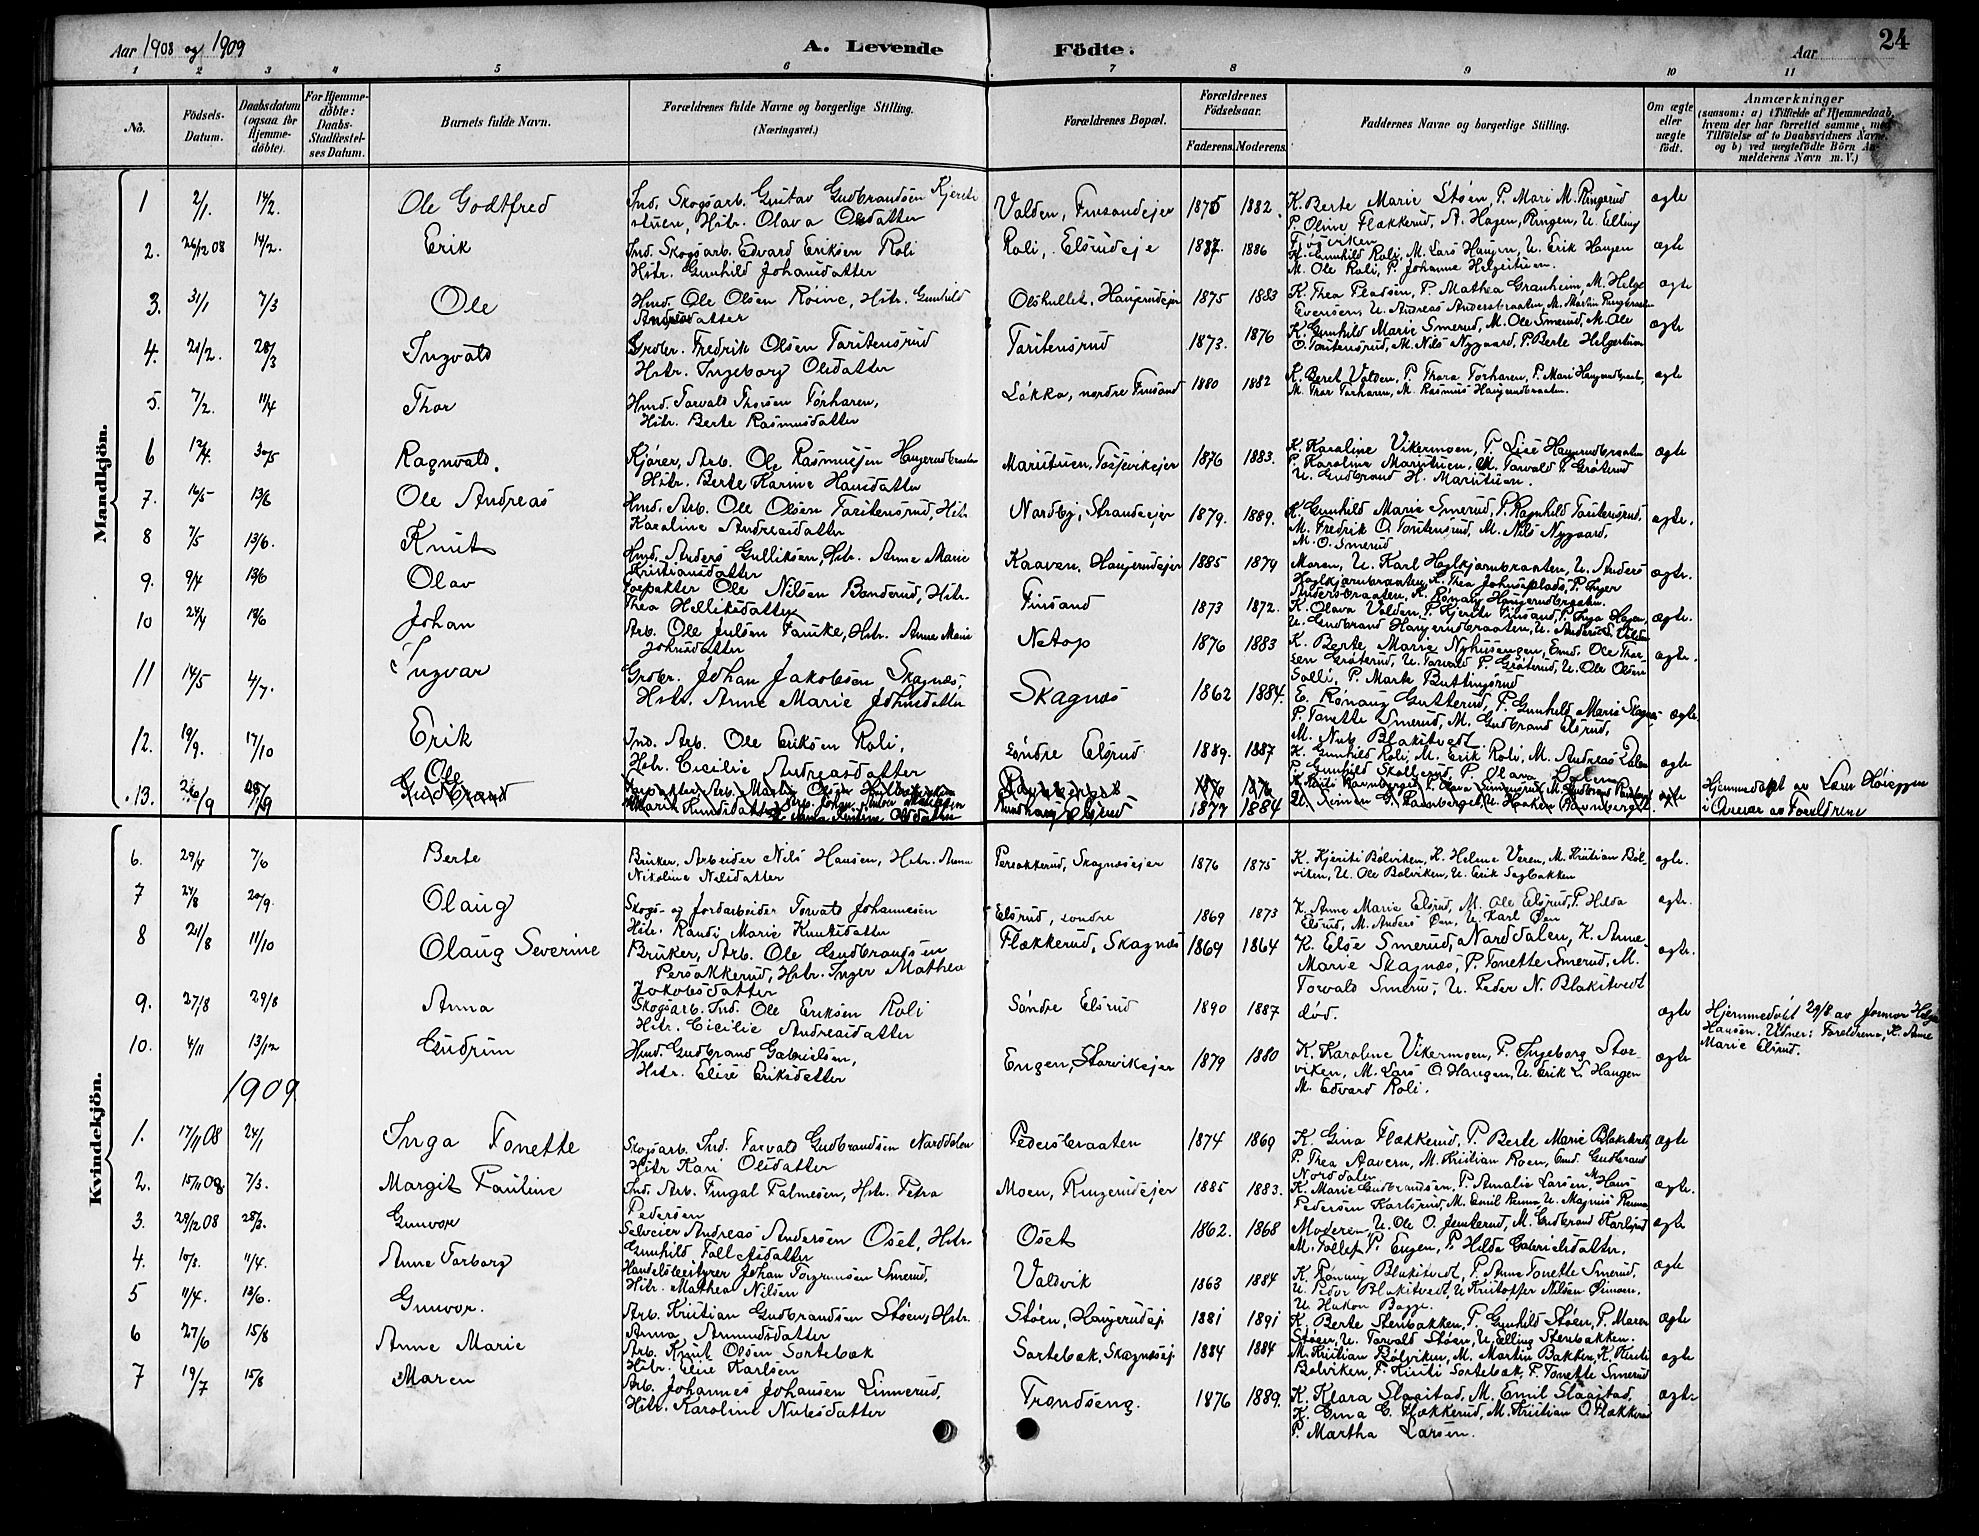 Aar 1908 og 1909 A. Levende Födte. Aar 24
1 2 3 4 5 6 7 8 9 10 11
No. Födsels-Datum. Daabsdatum (ogsaa for Hjemme-döbte). For Hjemme-döbte: Daabs-Stadfæstel-ses Datum. Barnets fulde Navn. Forældrenes fulde Navne og borgerlige Stilling. (Næringsvei.) Forældrenes Bopæl. Forældrenes Födselsaar. Faderens. Moderens. Faddernes Navne og borgerlige Stilling. Om ægte eller uægte födt. Anmærkninger (saasom: a) i Tilfælde af Hjemmedaab, hvem der har forrettet samme, med Tilföielse af to Daabsvidners Navne, og b) ved uægtefödte Börn An-melderens Navn m. V.)
Mandkjön.
1 2/1. 14/2. Ole Godtfred Ind. Skogsarb. Gustav Gudbrandsen Kjerste-
stuen, Hstr. Olava Olsdatter Valden, Finsandejer 1875 1882. K. Berte Marie Støen, P. Mari M. Ringerud ægte
P. Oline Flækkerud, A. Hagen, Ringen, U. Elling
2. 26/12 08 14/2. Erik Ind. Skogsarb. Edvard Eriksen Roli
Hstr. Gunhild Johansdatter Roli, Elsrudeje 1887. 1886 K. Gunhild Roli, M. Lars Haugen, U. Erik Haugen ægte
M. Ole Roli, P. Johanne Helgestuen.
3. 31/1 7/3 Ole Hmd. Ole Olsen Røine, Hstr. Gunhild
Andreasdatter Olshullet, Haugerudejer 1875 1883 K. Thea Pladsen, P. Mathea Granheim, M. Helge ægte
Evensen, U. Andreas Andersbraaten, M. Martin
4. 21/2. 28/3 Ingvald Grdbr. Fredrik Olsen Taritensrud
Hstr. Ingeborg Olsdatter Taritensrud 1873. 1876 K. Gunhild Marie Smerud, M. Ole Smerud, M. Ole ægte
O. Taritensrud, M. Nils Nygaard, P. Berte Helgestuen
5. 7/2. 11/4 Thor Hmd. Torvald Thorsen Torharen,
Hstr. Berte Rasmusdatter Løkka, nordre Finsand 1880 1882 K. Beret Valden, P. Thora Torharen, P. Mari Haugerudbraaten, ægte
M. Thor Torharen, M. Rasmus Haugerudbraaten.
6 12/4. 30/5 Ragnvald. Kjører, Arb. Ole Rasmussen Haugerudbraaten
Hstr. Berte Karine Hansdatter Maristuen, Tossevikejer 1876 1883. K. Karoline Vikermoen, P. Lise Haugerudbraaten ægte
P. Karoline Maristuen, M. Torvald P. Grøterud
U. Gudbrand H. Maristuen.
7. 16/5 13/6 Ole Andreas Hmd. Arb. Ole Olsen Taritensrud, Hstr.
Karoline Andreasdatter Nordby, Strandeejer 1879. 1889. K. Gunhild Marie Smerud, P. Ragnhild Taritensrud, ægte.
M. Fredrik O. Taritensrud, M. Nils Nygaard,
M. O. Smerud
8 7/5 13/6. Knut Hmd. Anders Gulliksen, Hstr. Anne Marie
Kristiansdatter Kaaven, Haugerudejer 1885 1879 Moren, U. Karl Høglkjærnbraaten, U. Anders ægte.
Høglkjærnbraaten, K. Thea Johnsplads, P. Inger
Andersbraaten, K. Rønaug Haugerudbraaten.
9. 9/4 13/6 Olav Forpakter Ole Nilsen Bonderud, Hstr.
Thea Helliksdatter Finsand 1873 1872. K. Olava Valden, P. Kjersti Finsand, P. Thea Hagen ægte.
U. Gudbrand Haugerudbraaten, U. Anders Valden
10 24/4 13/6 Johan Arb. Ole Julsen Fauske, Hstr. Anne Marie
Johnsdatter Netop 1876 1883 K. Berte Marie Nyhusengen, Emd. Ole Thor- ægte.
sen Grøterud, U. Torvald P. Grøterud, U. Ole Olsen
Solli, P. Marte Buttingsrud
11 14/5 4/7. Ingvar Grdbr. Johan Jakobsen Skagnæs,
Hstr. Anne Marie Johnsdatter Skagnæs 1862 1884. E. Rønaug Gutterud, P. Gunhild Marie Skagnæs ægte.
P. Tonette Smerud, M. Gudbrand Elsrud,
M. Nub Blakstvedt
12. 19/9. 17/10 Erik Ind. Arb. Ole Eriksen Roli,
Hstr. Cicilie Andreasdatter Søndre Elsrud 1889. 1887 K. Gunhild Roli, M. Erik Roli, M. Andreas Dalen ægte
P. Gunhild Skollerud, P. Olava
13. Ole Gudbrand 1877 1884 ægte Hjemmedøpt av Lærer Høieggen
i Nærvær av Forældrene
Kvindekjön.
6. 29/4 7/6 Berte Bruker, Arbeider Nils Hansen, Hstr. Anna
Nikoline Nilsdatter Persakkerud, Skagnæsejer 1876 1875 K. Kjersti Bølviken, K. Helene Veren, M. Kristian Bøl- ægte.
viken, U. Ole Bølviken, U. Erik Sagbakken
7 24/8 20/9. Olaug Skogs- og Jordarbeider Torvald Johannesen
Hstr. Randi Marie Knutsdatter Elsrud, søndre 1869 1873 K. Anne Marie Elsrud, M. Ole Elsrud, P. Hilda ægte.
Elsrud, M. Anders Øen, U. Karl Øen
8 21/8 11/10 Olaug Severine Bruker, Arb. Ole Gudbrandsen
Persakkerud, Hstr. Inger Mathea
Jakobsdatter Flækkerud, Skagnæs 1869 1864 K. Else Smerud, Norddalen, K. Anne- ægte.
Marie Skagnæs, P. Tonette Smerud, M.
Torvald Smerud, U. Peder N. Blakstvedt
9. 27/8 29/8 Anna Skogsarb. Ind. Ole Eriksen Roli
Hstr. Cicilie Andreasdatter Søndre Elsrud 1890 1887 død. ægte Hjemmedøbt 29/8 av Jormor Helga
Hansen. Vidner: Forældrene, K. Anne
Marie Elsrud.
10. 4/11 13/12 Gudrun Hmd. Gudbrand Gabrielsen,
Hstr. Elise Eriksdatter Engen, Storvikejer 1879 1880 K. Karoline Vikermoen, P. Ingeborg Stor- ægte
viken, M. Lars O. Haugen, U. Erik L. Haugen
M. Edvard Roli.
1909
1. 17/11 08 24/1 Inga Tonette Skogsarb. Ind. Torvald Gudbrandsen Norddalen
Hstr Kari Olsdatter Pedersbraaten 1874 1869 K. Gina Flækkerud, P. Berte Marie Blakstvedt, ægte
P. Thea Aavern, M. Kristian Roen, Emd. Gudbrand
Norddalen
2. 15/11 08 7/3. Margit Pauline Ind. Arb. Fingal Palmesen, Hstr. Petra
Pedersen Moen, Ringerudejer 1885 1883. K. Marie Gudbrandsen, P. Amalie Larsen, M. Hans ægte.
Pedersen Karlsrud, M. Emil Renna, U. Magnus Renna
3. 29/12 08 28/3. Gunvor Selveier Andreas Andersen Oset, Hstr.
Gunhild Tollefsdatter Oset 1862. 1868 Moderen, U. Ole O. Jemterud, M. Gudbrand Karlsrud ægte
M. Tollef P. Engen, P. Hilda Gabrielsdatter.
4. 10/3. 11/4. Anne Torborg Handelsbestyrer Johan Torgrimsen Smerud,
Hstr. Mathea Nilsen Valdvik 1863 1884 K. Rønaug Blakstvedt, P. Anne Tonette Smerud, ægte
U. Peder Blakstvedt, U. Kristoffer Nilsen Simoen,
U. Hakon Bagge.
5 11/4. 13/6. Gunvor. Arb. Kristian Gudbrandsen Støen, Hstr.
Anna Amundsdatter Støen, Haugerudej 1881 1891 K. Berte Stenbakken, P. Gunhild Støen, P. Maren ægte
Støen, U. Torvald Støen, U. Elling Stenbakken.
6 27/6 15/8 Anne Marie Arb. Knut Olsen Sortebæk
Hstr. Elise Karlsen Sortebæk, Skagnæsej 1884 1884 M. Kristian Bølviken, M. Martin Bakken, K. Kirsti ægte
Bølviken, P. Kirsti Sortebæk, P. Tonette Smerud
7 19/7 15/8 Maren Arb. Johannes Johansen Linnerud,
Hstr. Karoline Nubsdatter Trondseng. 1876 1889. K. Klara Slaastad, M. Emil Slaastad, ægte
K. Gina G. Flækkerud, M. Kristian O. Flækkerud
P. Martha Larsen.